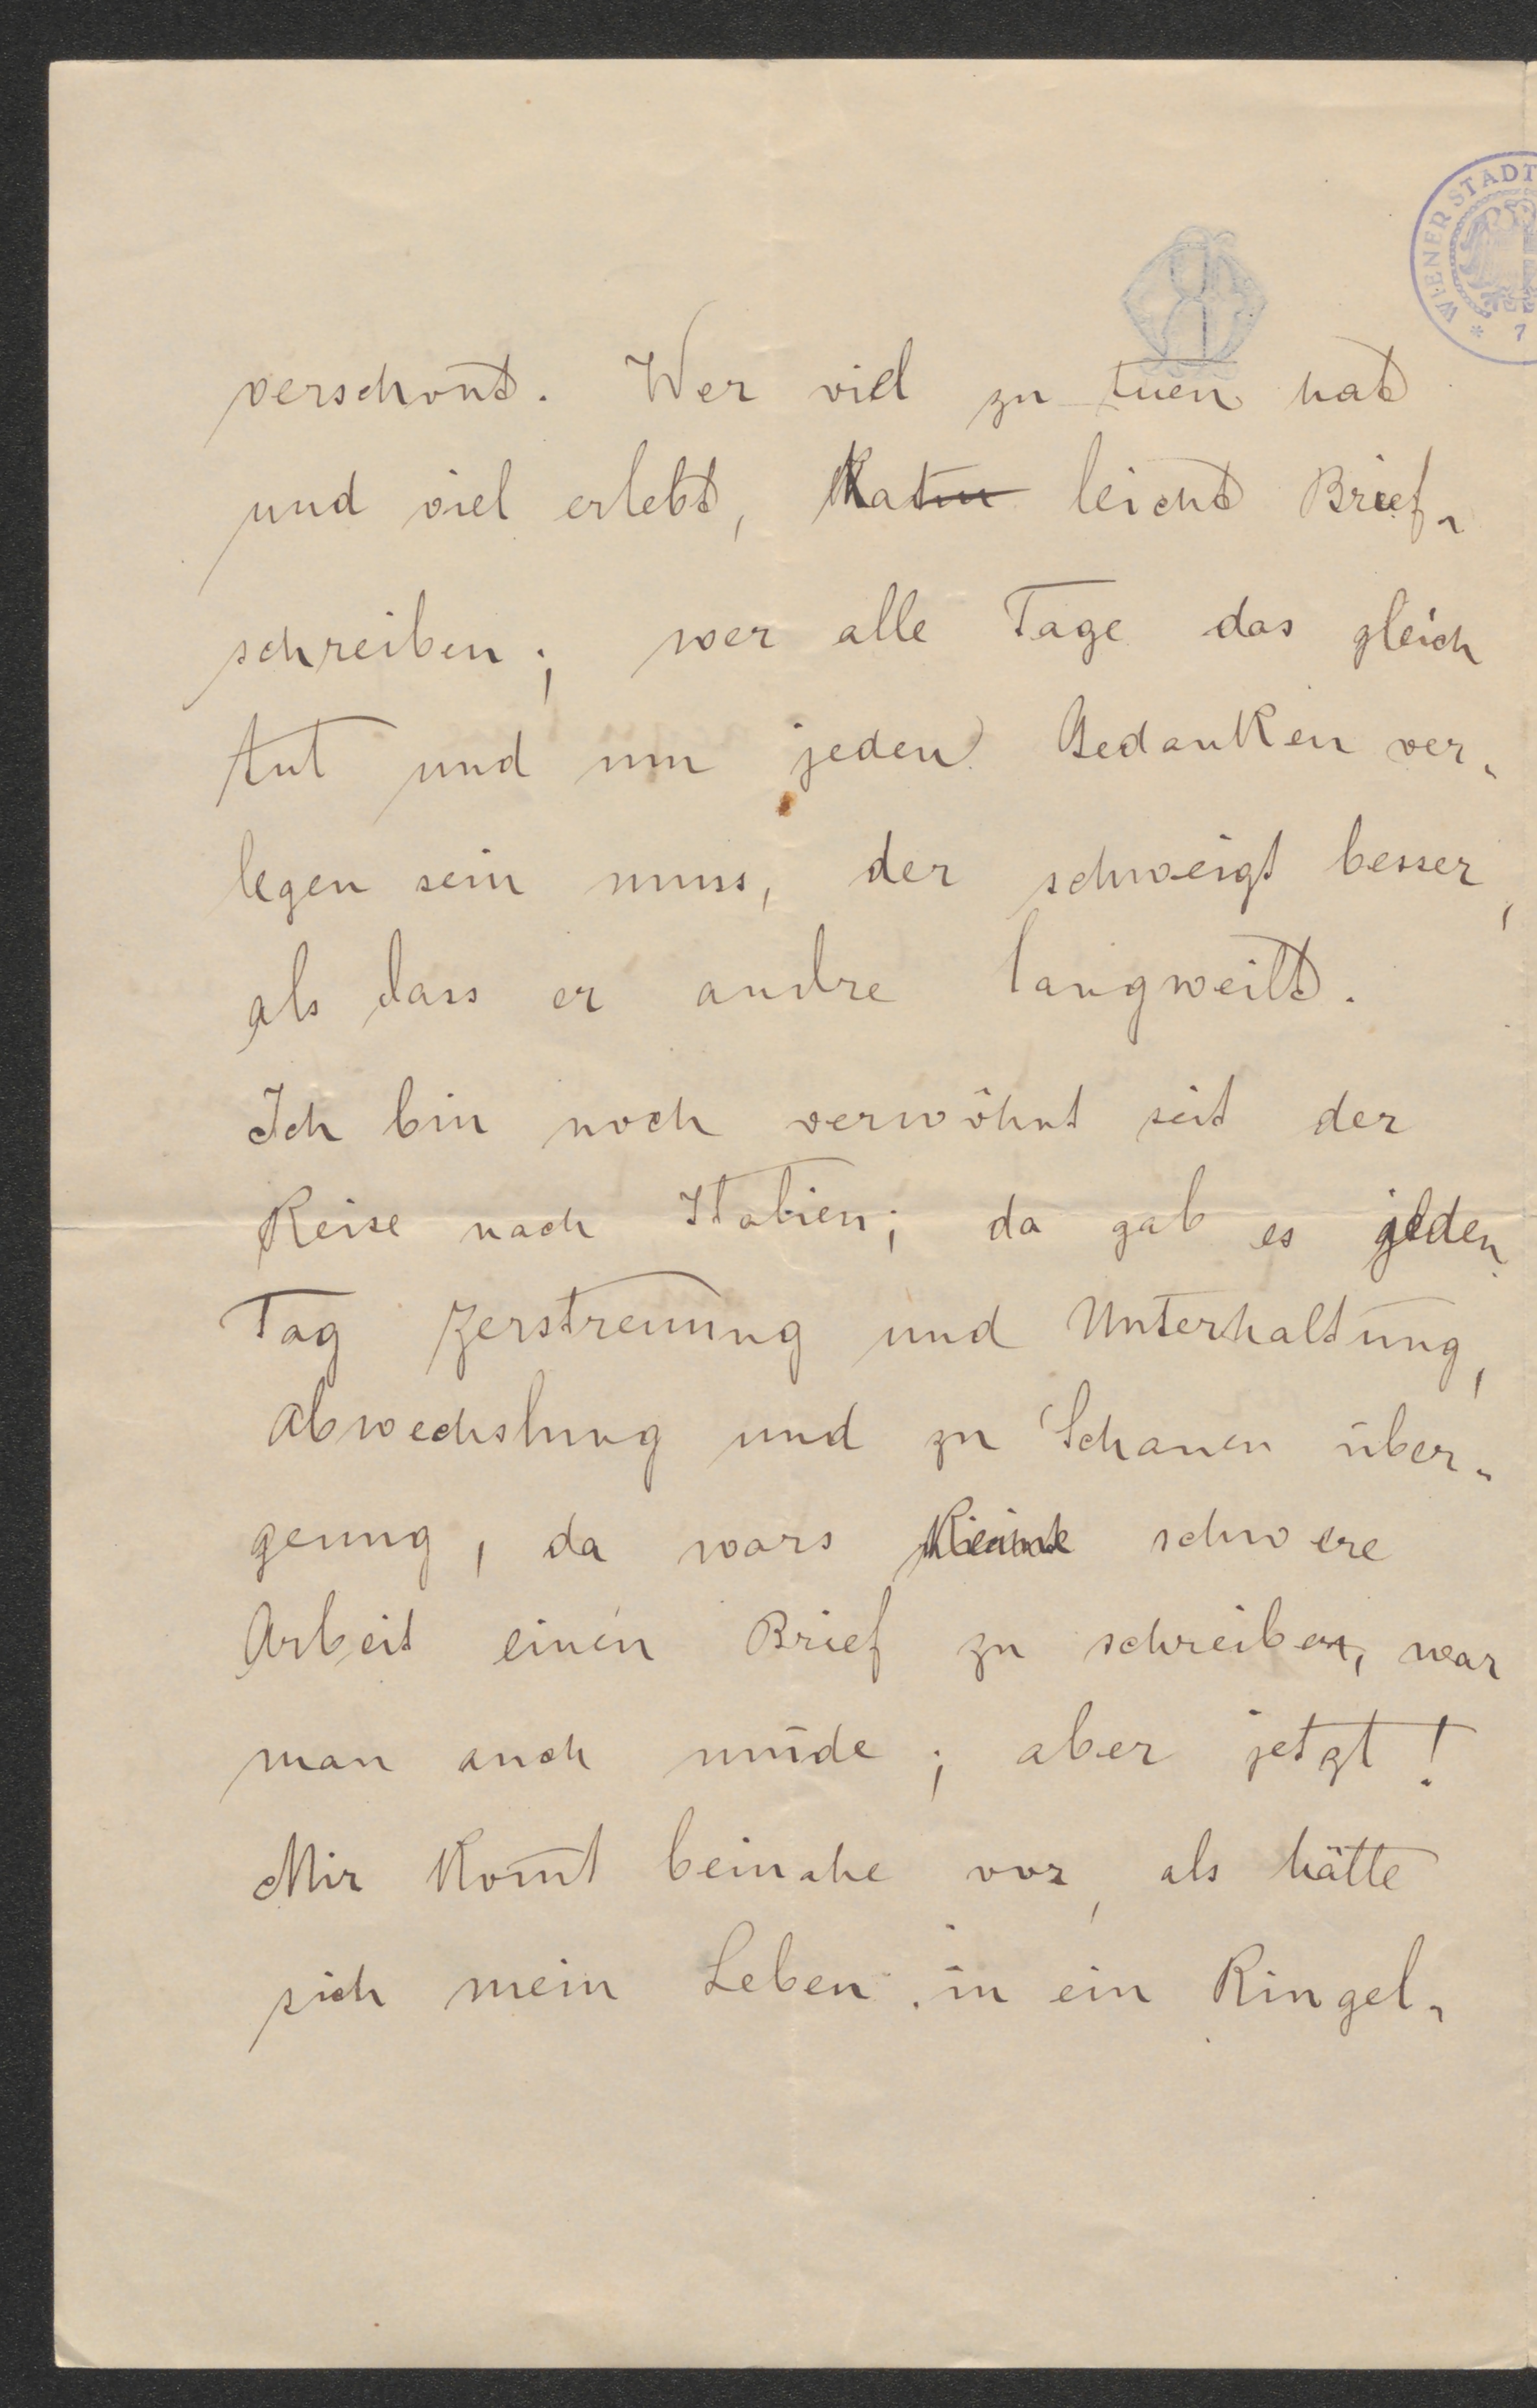 WIENER STADT
* 7
verschont. Wer viel zu tuen hat
und viel erlebt, hat leicht Brief-
schreiben; wer alle Tage das gleich
tut und um jeden Gedanken ver-
legen sein muss, der schweigt besser,
als dass er andre langweilt.
Ich bin noch verwöhnt seit der
Reise nach Italien; da gab es jeden
Tag Zerstreuung und Unterhaltung,
Abwechslung und zu Schauen über-
genug, da wars keine schwere
Arbeit einen Brief zu schreiben, war
man auch müde; aber jetzt!
Mir kom̄t beinahe vor, als hätte
sich mein Leben in ein Ringel-